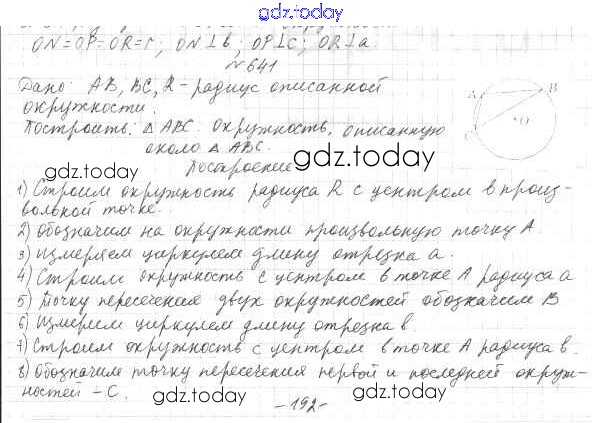 gdz.today
ON=OP=OR=r; ON⊥b; OP⊥c; OR⊥a.
№641
Дано: AB, BC, R - радиус описанной
окружности.
Построить: △ABC. окружность, описанную
около △ABC.
gdz.today
Построение
1) Строим окружность радиуса R с центром в произ-
вольной точке.
2) Обозначим на окружности произвольную точку A.
3) Измеряем циркулем длину отрезка a.
4) Строим окружность с центром в точке A радиуса a
5) Точку пересечения двух окружностей обозначим B
6) Измерим циркулем длину отрезка b.
7) Строим окружность с центром в точке A радиуса b.
8) Обозначим точку пересечения первой и последней окруж-
ностей - C.
gdz.today
-192-
gdz.today
A
B
C
O